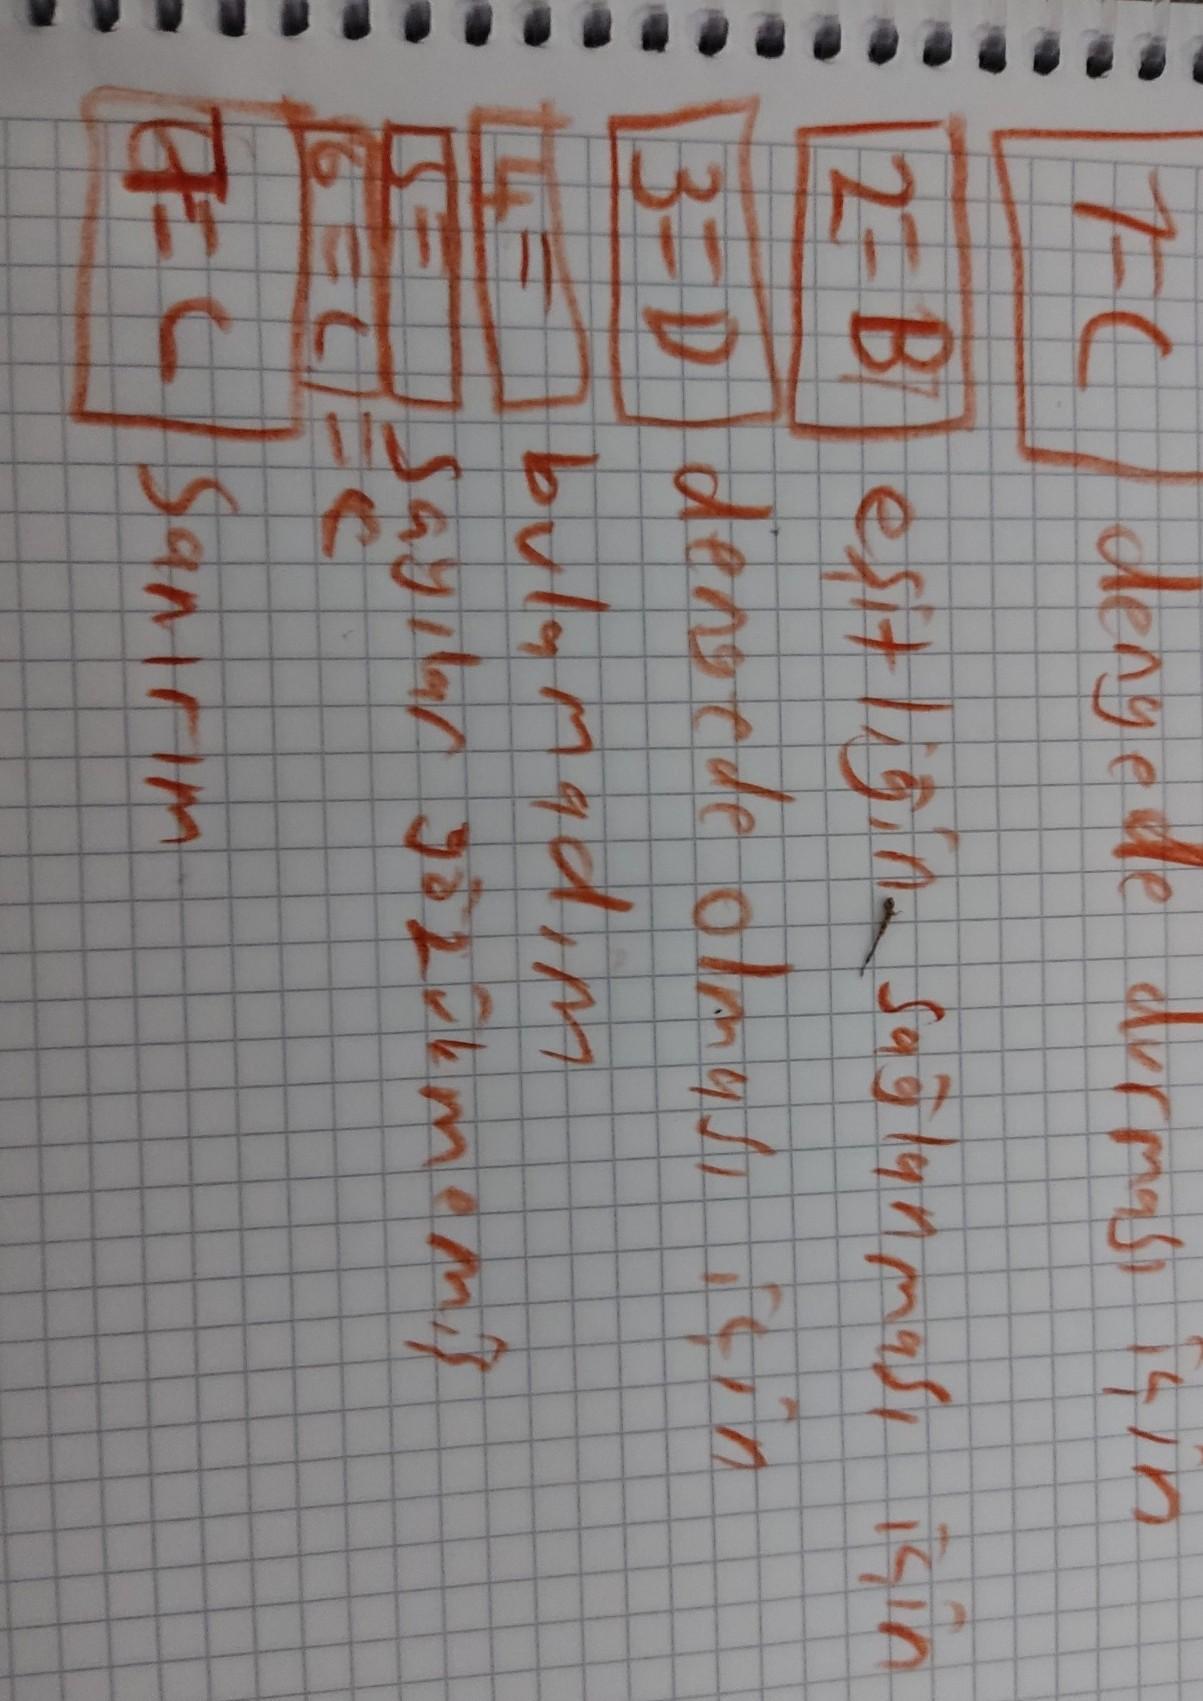 1=C dengede durması için
2=B eşitliğin sağlanması için
3=D dengede olması için
4= bulamadım
5= Sayılar gözükmemiş
6=C =C
7=C Sanırım